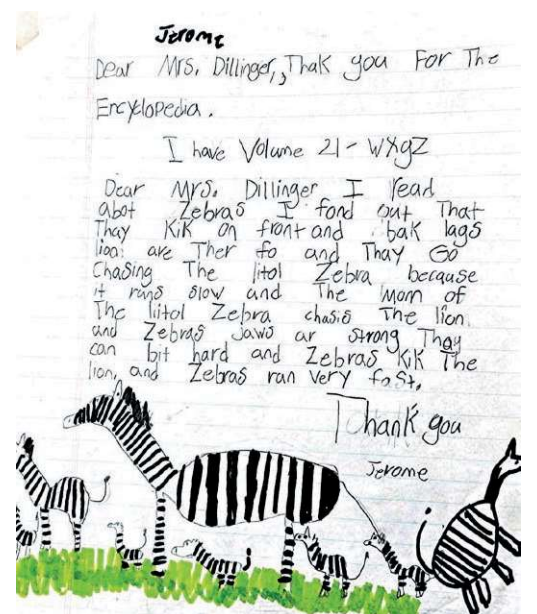 Jerome
Dear Mrs. Dillinger,, Thak you For The
Encyclopedia.
I have Volume 21 - WXYZ
Dear Mrs. Dillinger I read
abot Zebras I fond out That
Thay Kik on front and bak lags
lion: are Ther fo and Thay Go
Chasing The litol Zebra because
it runs slow and The Mom of
The litol Zebra chasis The lion.
and Zebras jaws ar strong Thay
can bit hard and Zebras Kik The
lion, and Zebras ran very fast.
Thank you
Jerome